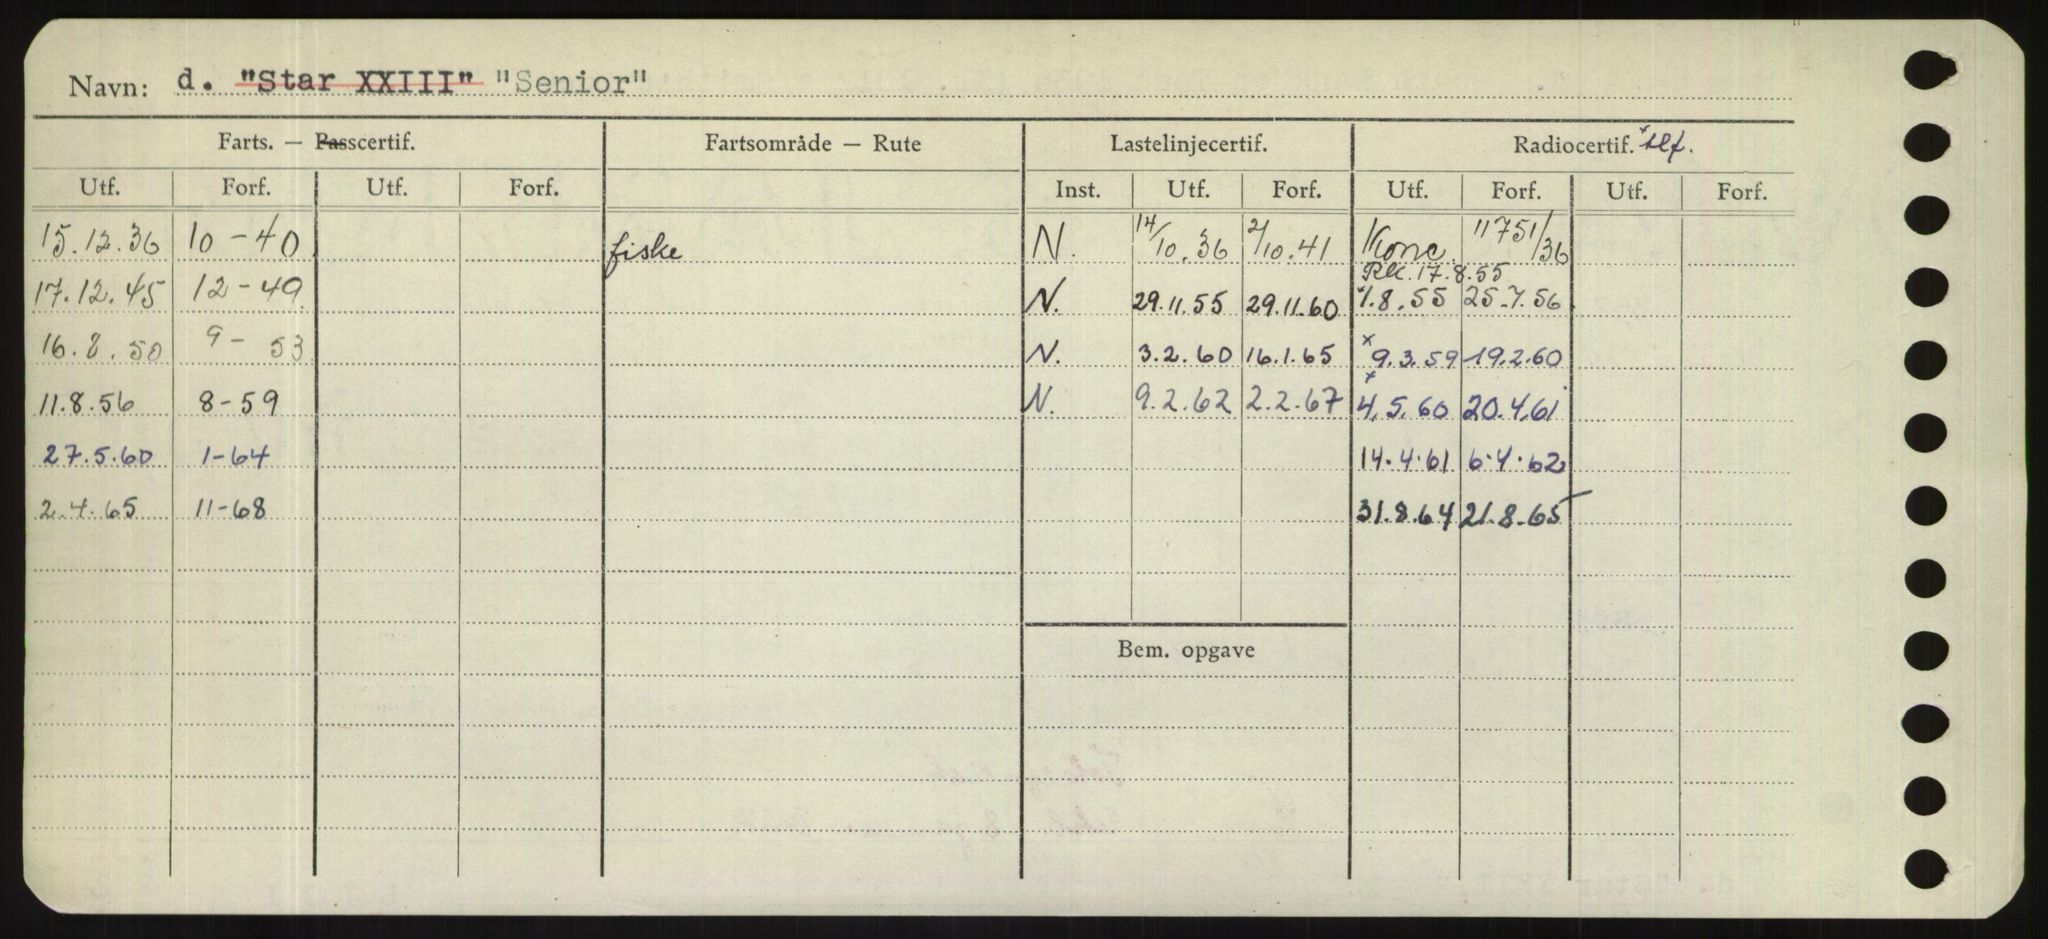 Navn: d. "Star XXIII" "Senior"
Farts. — Passcertif. Fartsområde — Rute Lastelinjecertif. Radiocertif. x tlf.
Utf. Forf. Utf. Forf. Inst. Utf. Forf. Utf. Forf. Utf. Forf.
15.12.36 10-40 fiske N. 14/10.36 2/10.41 Konc. 11751/36
Rk. 17.8.55
17.12.45 12-49 N. 29.11.55 29.11.60 x1.8.55 25.7.56
16.8.50 9-53 N. 3.2.60 16.1.65 x9.3.59 19.2.60
11.8.56 8-59 N. 9.2.62 2.2.67 x4.5.60 20.4.61
27.5.60 1-64 14.4.61 6.4.62
2.4.65 11-68 31.8.64 21.8.65
Bem. opgave